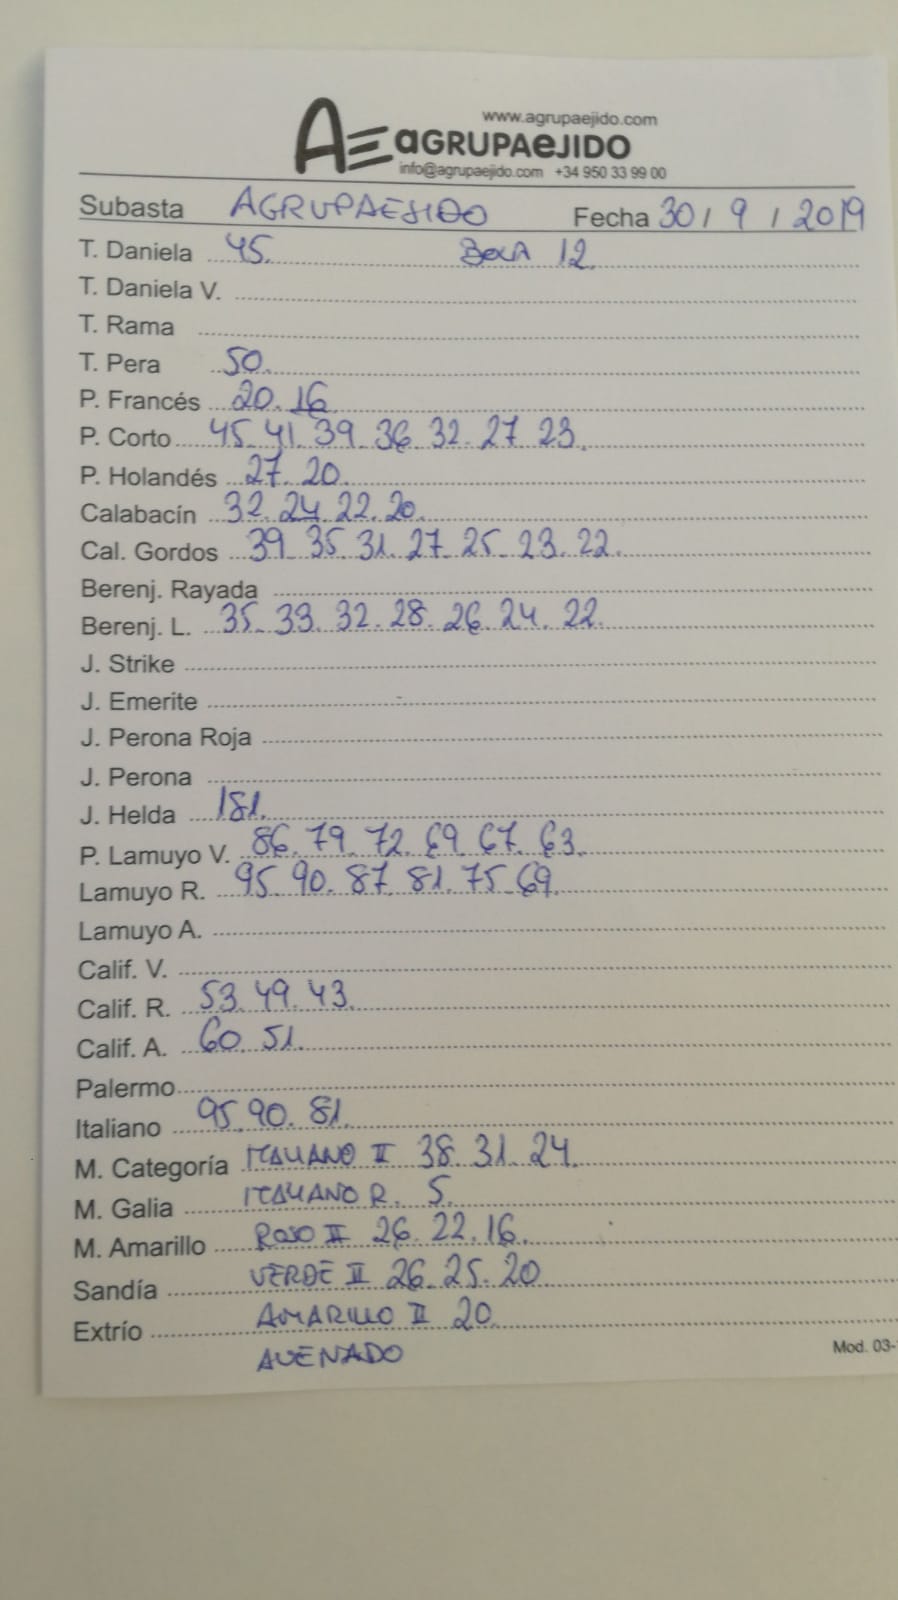 www.agrupaejido.com
AE aGRUPAeJIDO
info@agrupaejido.com +34 950 33 99 00
Subasta AGRUPAEJIDO Fecha 30 / 9 / 2019
T. Daniela 45. BOLA 12.
T. Daniela V.
T. Rama
T. Pera 50.
P. Francés 20. 16
P. Corto 45. 41. 39. 36. 32. 27. 23.
P. Holandés 27. 20.
Calabacín 32. 24. 22. 20.
Cal. Gordos 39. 35. 31. 27. 25. 23. 22.
Berenj. Rayada
Berenj. L. 35. 33. 32. 28. 26. 24. 22.
J. Strike
J. Emerite
J. Perona Roja
J. Perona
J. Helda 181.
P. Lamuyo V. 86. 79. 72. 69. 67. 63.
Lamuyo R. 95. 90. 87. 81. 75. 69.
Lamuyo A.
Calif. V.
Calif. R. 53. 49. 43.
Calif. A. 60. 51.
Palermo
Italiano 95. 90. 81.
M. Categoría ITALIANO II 38. 31. 24.
M. Galia ITALIANO R. 5.
M. Amarillo ROJO II 26. 22. 16.
Sandía VERDE II 26. 25. 20
Extrío AMARILLO II 20.
AVENADO
Mod. 03-